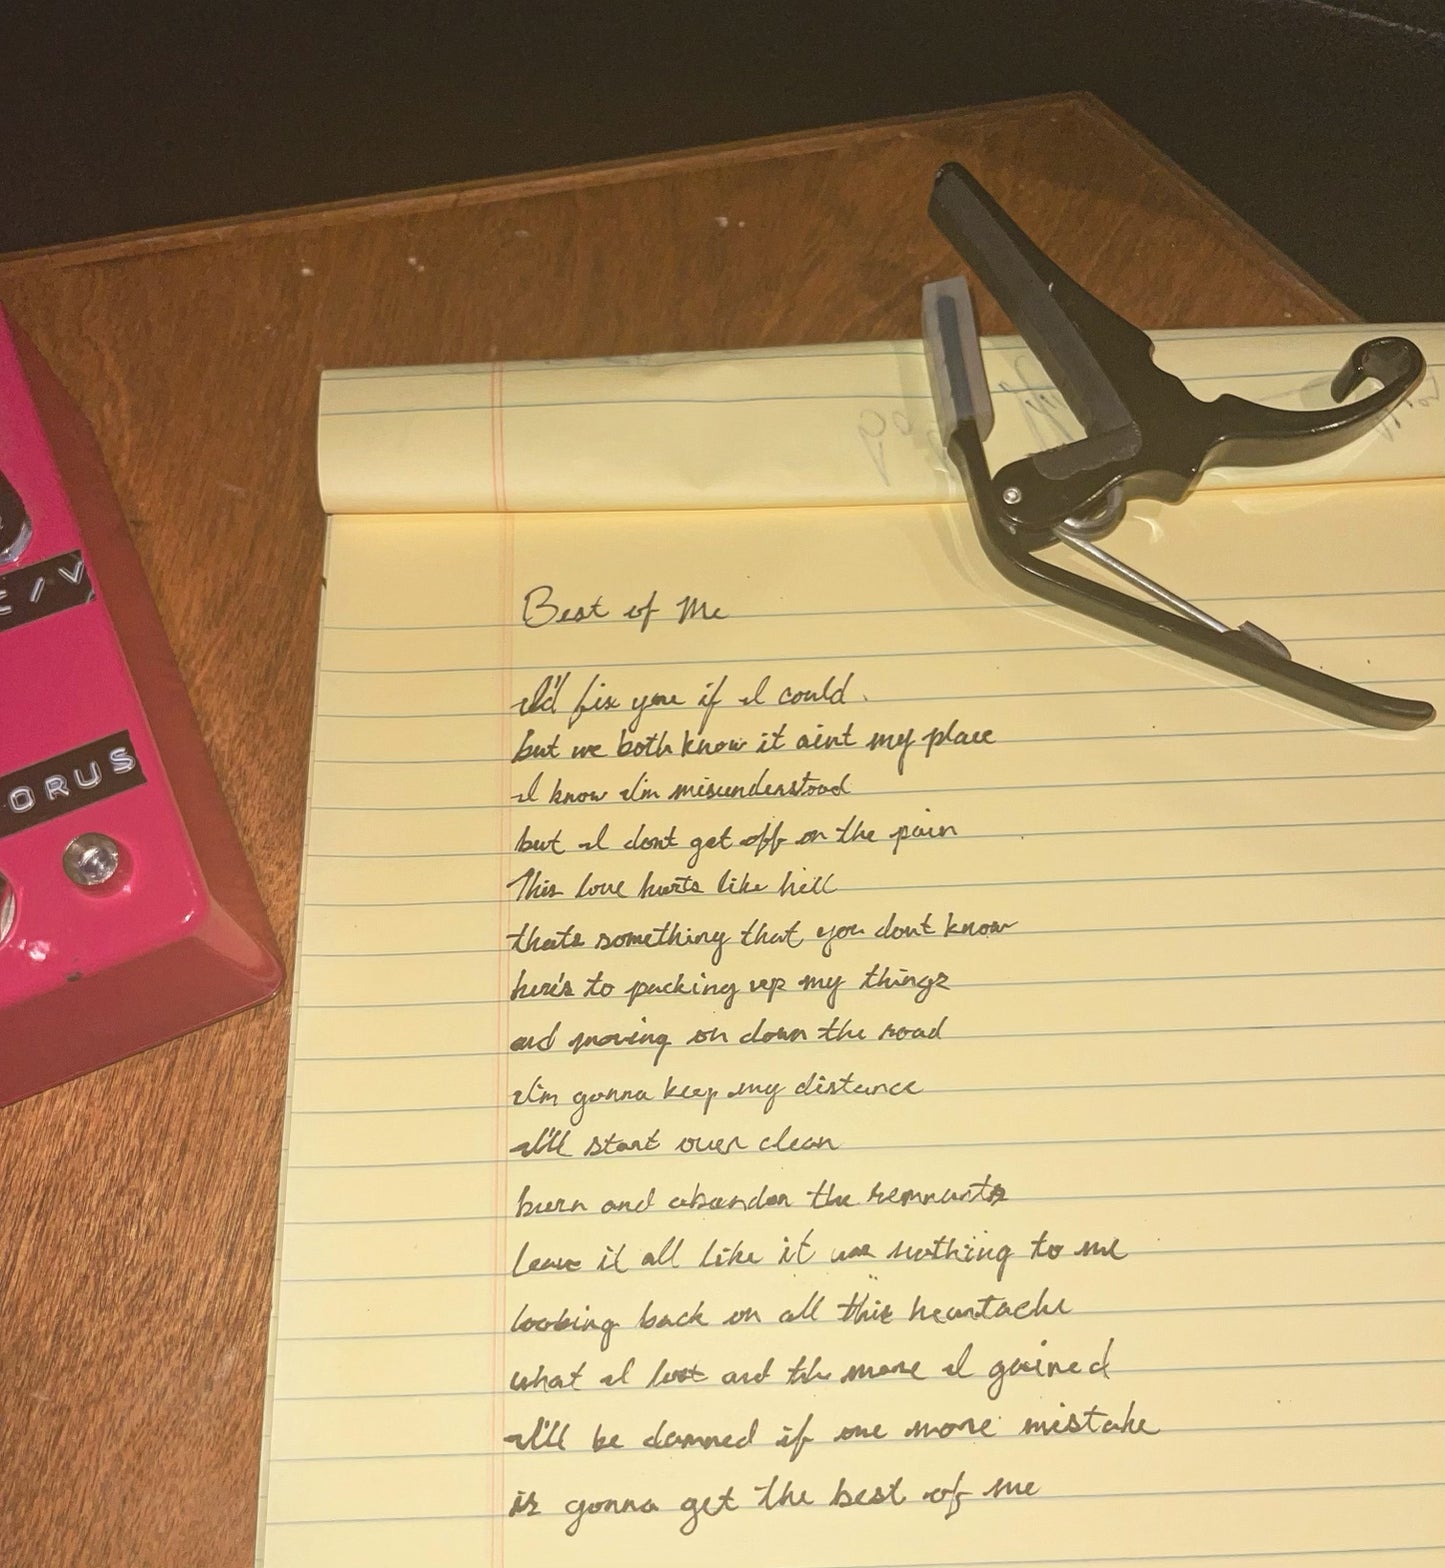 C/V
ORUS
Best of Me
I'd fix you if I could.
but we both know it aint my place
I know I'm misunderstood
but I dont get off on the pain
This love hurts like hell
thats something that you dont know
here's to packing up my things
and moving on down the road
I'm gonna keep my distance
I'll start over clean
burn and abandon the remnants
leave it all like it was nothing to me
looking back on all this heartache
what I lost and the more I gained
I'll be damned if one more mistake
is gonna get the best of me